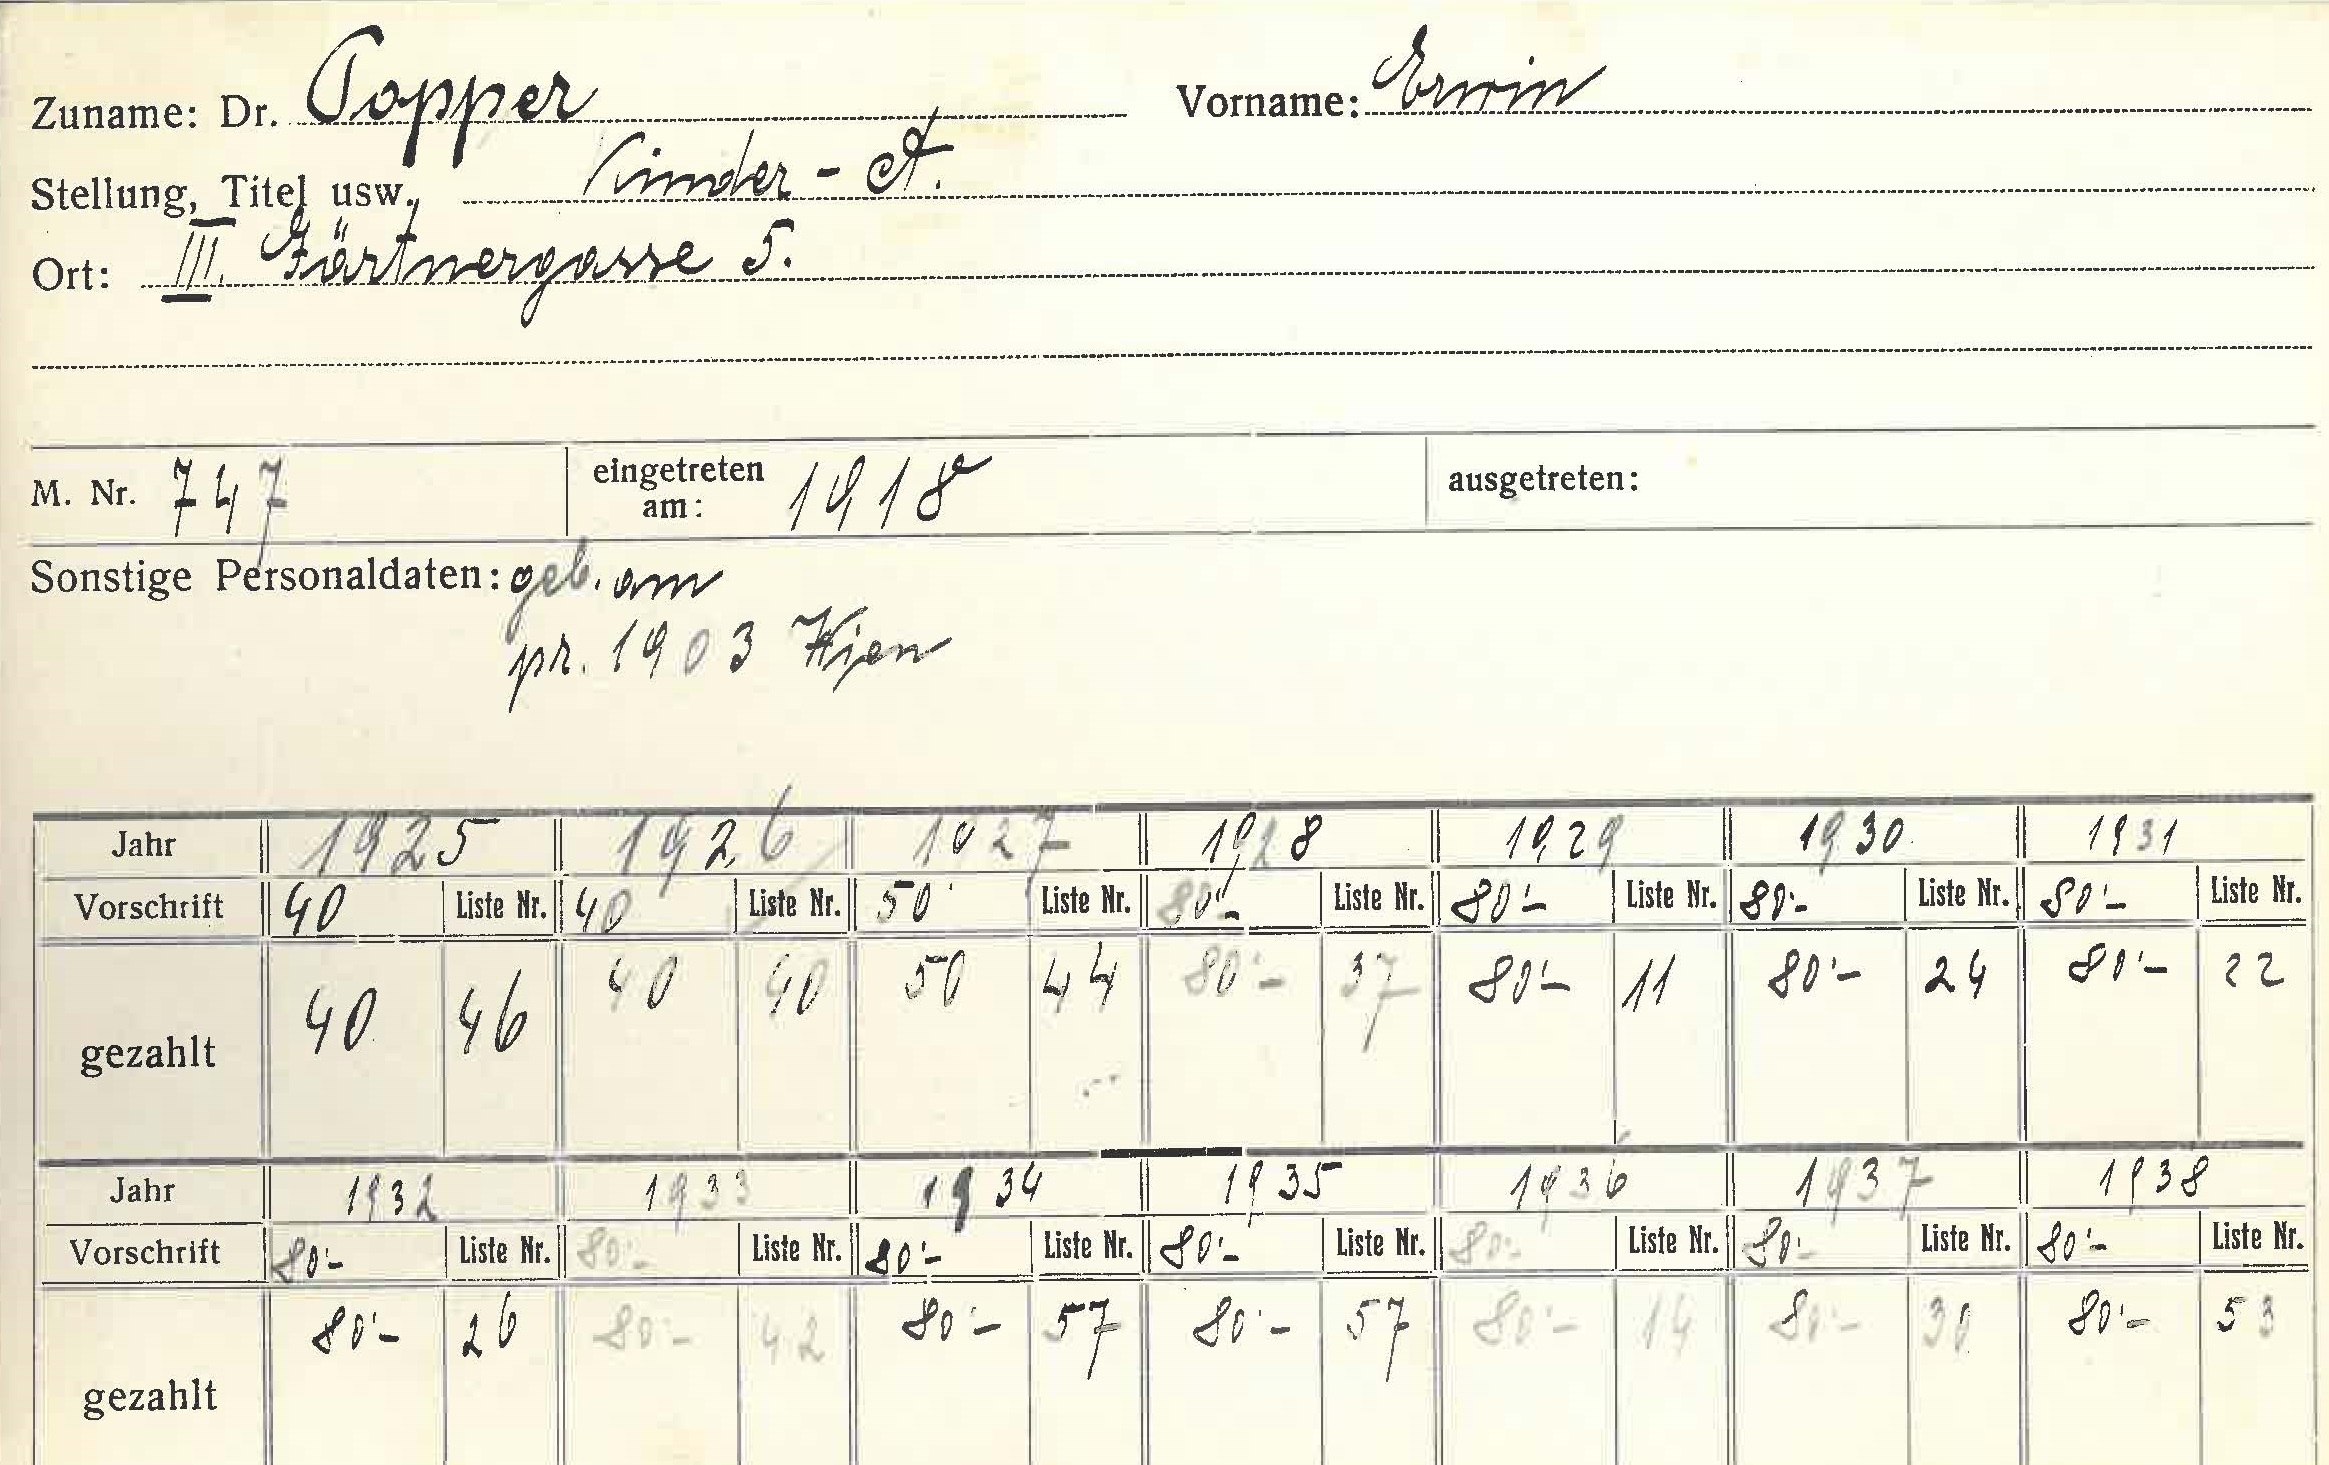 Zuname: Dr. Popper Vorname: Erwin
Stellung, Titel usw. Kinder - A.
Ort: III. Gärtnergasse 5.
M. Nr. 747 eingetreten am: 1918 ausgetreten:
Sonstige Personaldaten: geb. am
pr. 1903 Wien
Jahr 1925 1926 1927 1928 1929 1930 1931
Vorschrift 40 Liste Nr. 40 Liste Nr. 50 Liste Nr. 80'- Liste Nr. 80'- Liste Nr. 80'- Liste Nr. 80'- Liste Nr.
gezahlt 40 46 40 40 50 44 80'- 37 80'- 11 80'- 24 80'- 22
Jahr 1932 1933 1934 1935 1936 1937 1938
Vorschrift 80'- Liste Nr. 80'- Liste Nr. 80'- Liste Nr. 80'- Liste Nr. 80'- Liste Nr. 80'- Liste Nr. 80'- Liste Nr.
gezahlt 80'- 26 80'- 42 80'- 57 80'- 57 80'- 14 80'- 30 80'- 53